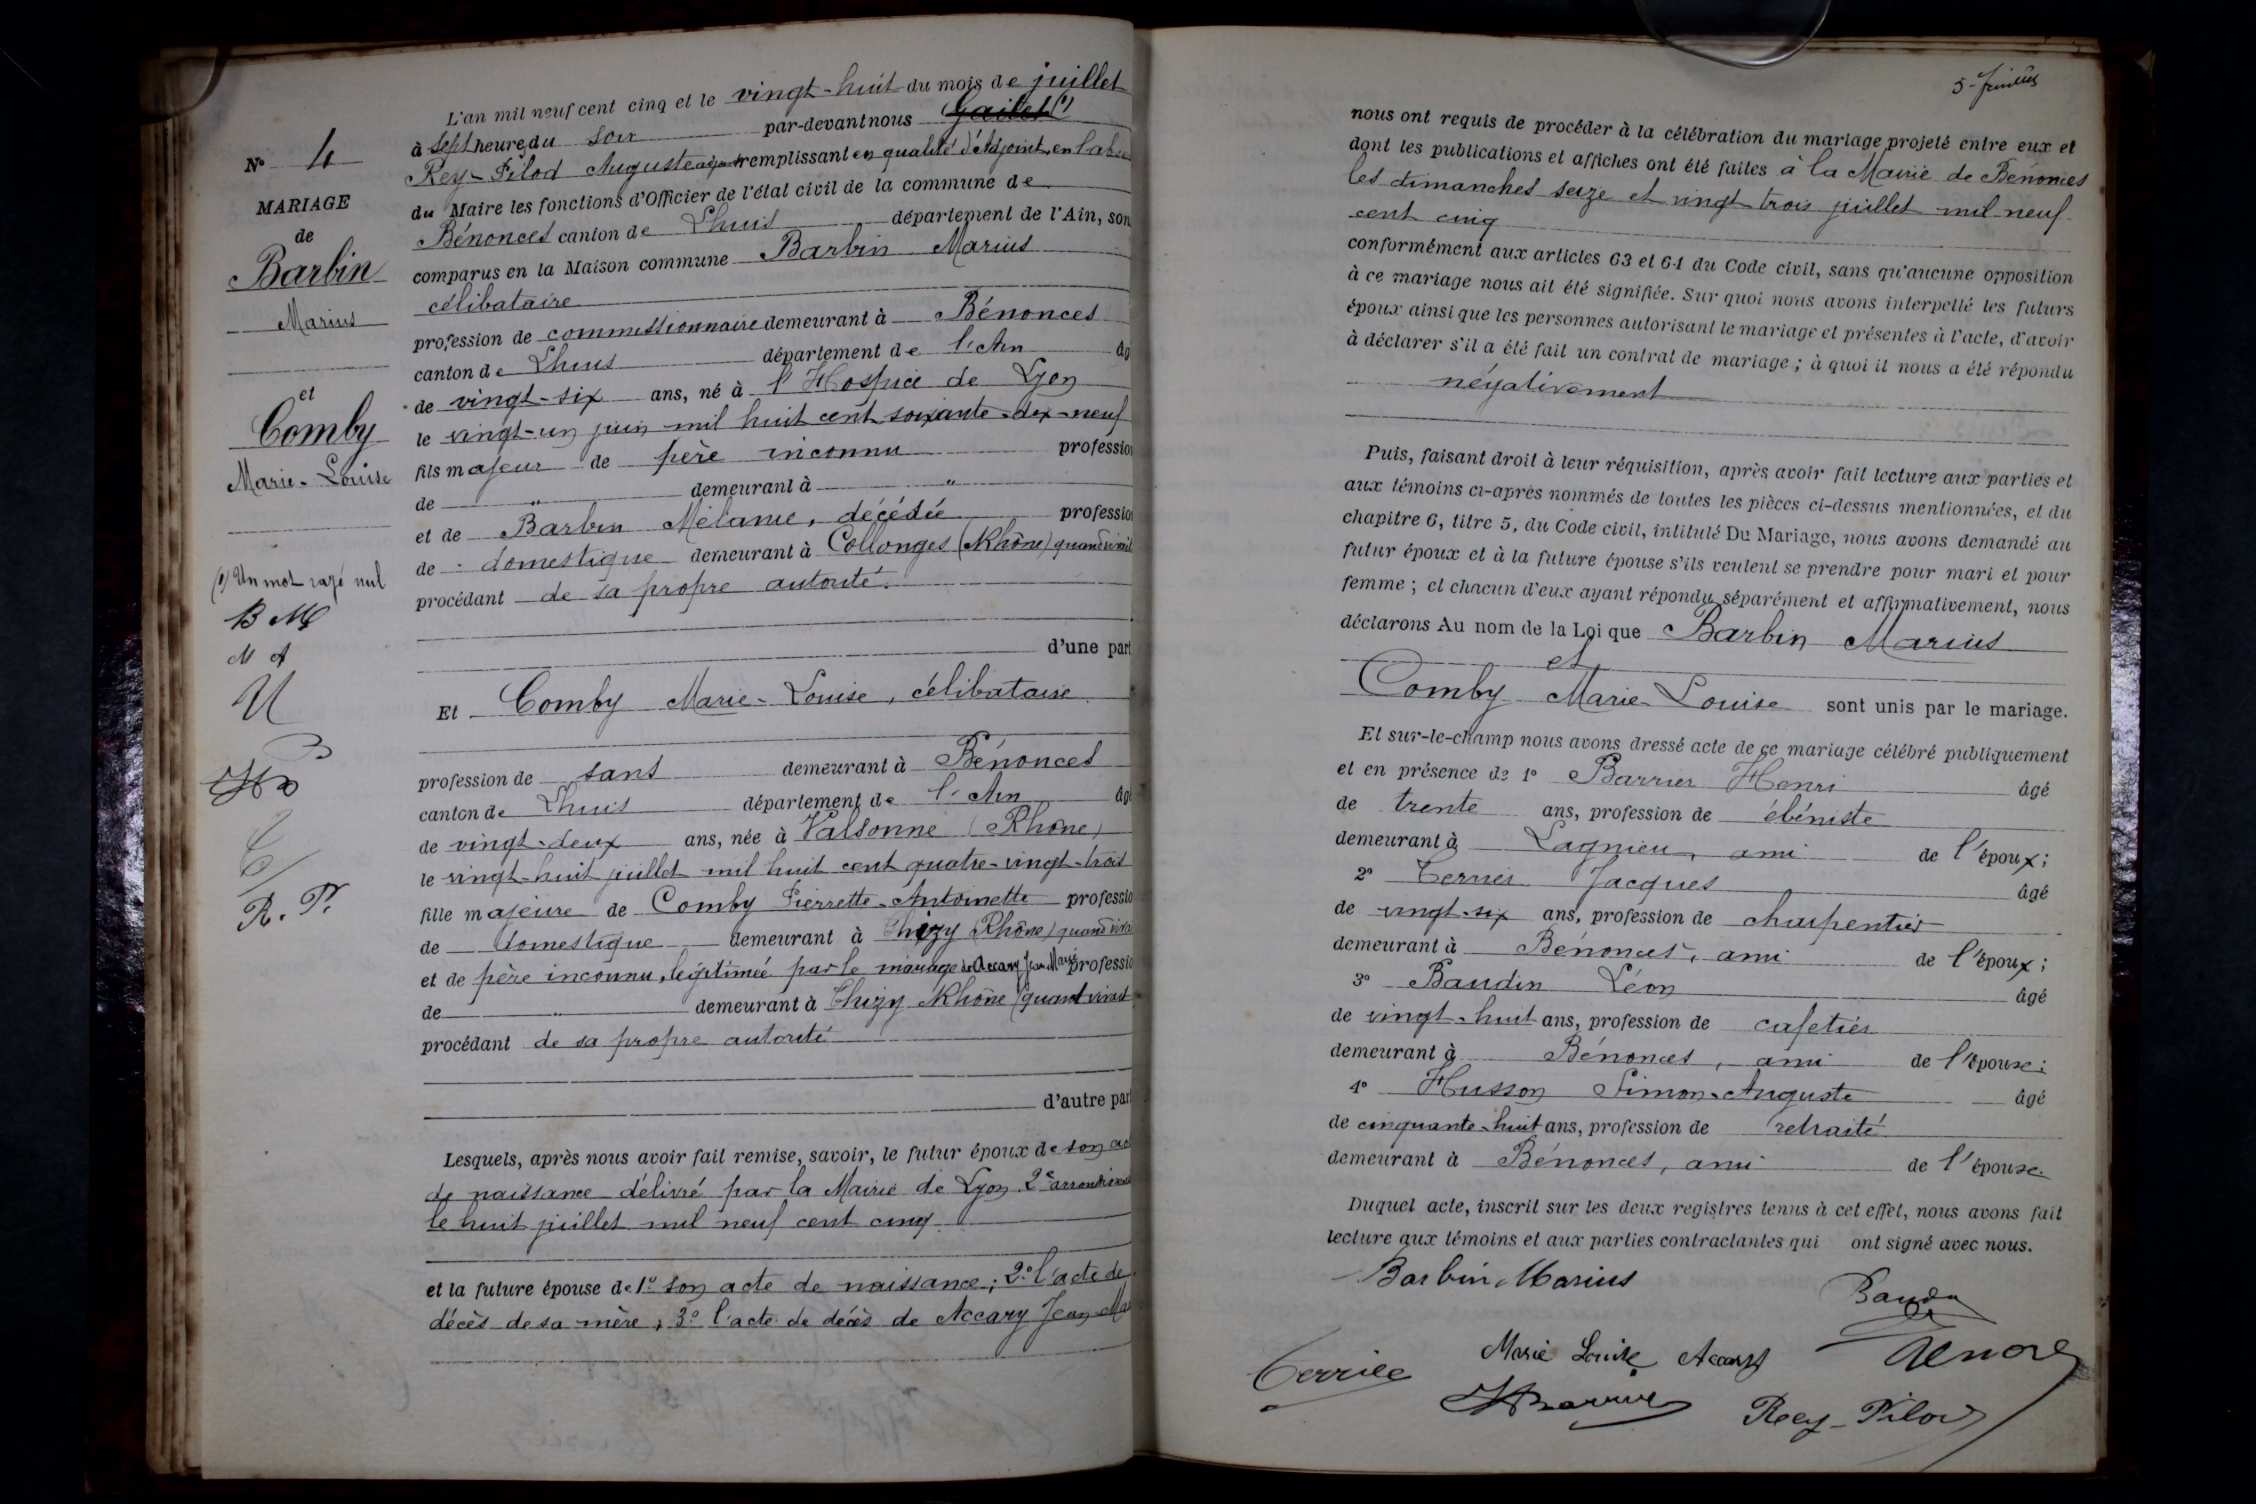 N° 4
MARIAGE
de
Barbin
Marius
et
Comby
Marie-Louise
(1) Un mot rayé nul
B M
M A
R. P.
L'an mil neuf cent cinq et le vingt-huit du mois de juillet
à sept heure du soir par-devant nous (1)
Rey-Pilod Auguste remplissant en qualité d'Adjoint en
du Maire les fonctions d'Officier de l'état civil de la commune de
Bénonces canton de Lhuis département de l'Ain, son
comparus en la Maison commune Barbin Marius
célibataire
profession de commissionnaire demeurant à Bénonces
canton de Lhuis département de l'Ain âg
de vingt-six ans, né à l'Hospice de Lyon
le vingt-un juin mil huit cent soixante-dix-neuf
fils majeur de père inconnu profession
de " demeurant à "
et de Barbin Mélanie, décédée profession
de domestique demeurant à Collonges (Rhône) quand vivait
procédant de sa propre autorité.
d'une part
Et Comby Marie-Louise, célibataire
profession de sans demeurant à Bénonces
canton de Lhuis département de l'Ain âgé
de vingt-deux ans, née à Valsonne (Rhône)
le vingt-huit juillet mil huit cent quatre-vingt-trois
fille majeure de Comby Pierrette-Antoinette professio
de domestique demeurant à Thizy (Rhône) quand viva
et de père inconnu, légitimée par le mariage de Accary Jean Marie professio
de " demeurant à Thizy Rhône (quand vivait
procédant de sa propre autorité
d'autre part
Lesquels, après nous avoir fait remise, savoir, le futur époux de son ac
de naissance délivré par la Mairie de Lyon 2e arrondisse
le huit juillet mil neuf cent cinq
et la future épouse de 1° son acte de naissance; 2° l'acte de
décès de sa mère, 3° l'acte de décès de Accary Jean-Ma
nous ont requis de procéder à la célébration du mariage projeté entre eux et
dont les publications et affiches ont été faites à la Mairie de Bénonces
les dimanches seize et vingt trois juillet mil neuf
cent cinq
conformément aux articles 63 et 64 du Code civil, sans qu'aucune opposition
à ce mariage nous ait été signifiée. Sur quoi nous avons interpellé les futurs
époux ainsi que les personnes autorisant le mariage et présentes à l'acte, d'avoir
à déclarer s'il a été fait un contrat de mariage; à quoi il nous a été répondu
négativement
Puis, faisant droit à leur réquisition, après avoir fait lecture aux parties et
aux témoins ci-après nommés de toutes les pièces ci-dessus mentionnées, et du
chapitre 6, titre 5, du Code civil, intitulé Du Mariage, nous avons demandé au
futur époux et à la future épouse s'ils veulent se prendre pour mari et pour
femme; et chacun d'eux ayant répondu séparément et affirmativement, nous
déclarons Au nom de la Loi que Barbin Marius
et
Comby Marie-Louise sont unis par le mariage.
Et sur-le-champ nous avons dressé acte de ce mariage célébré publiquement
et en présence de 1° Barrier Henri âgé
de trente ans, profession de ébéniste
demeurant à Lagnieu, ami de l'époux;
2° Terrier Jacques âgé
de vingt-six ans, profession de charpentier
demeurant à Bénonces, ami de l'époux;
3° Baudin Léon âgé
de vingt-huit ans, profession de cafetier
demeurant à Bénonces, ami de l'épouse;
4° Husson Simon-Auguste âgé
de cinquante-huit ans, profession de retraité
demeurant à Bénonces, ami de l'épouse.
Duquel acte, inscrit sur les deux registres tenus à cet effet, nous avons fait
lecture aux témoins et aux parties contractantes qui ont signé avec nous.
Barbin Marius
Marie Louise Accary
Rey-Pilod